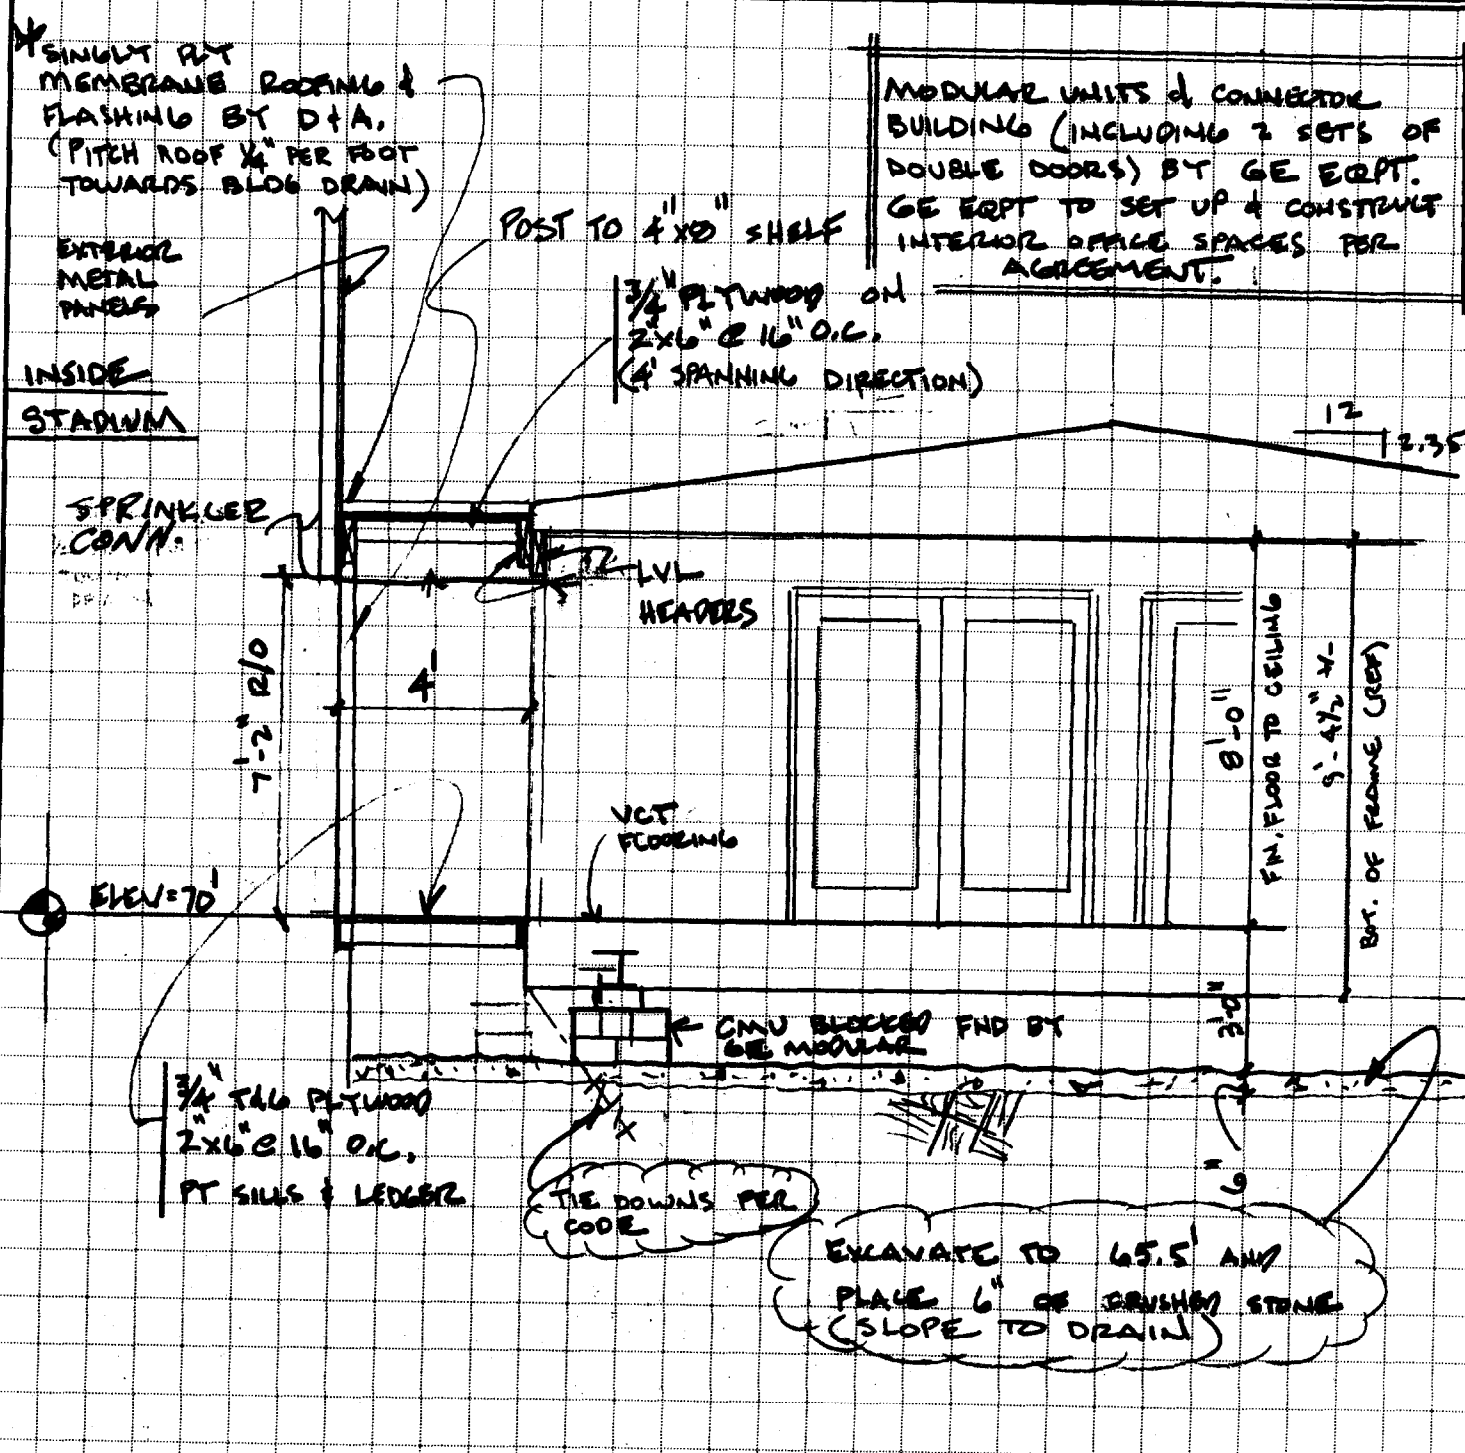 * SINGLY PLY
MEMBRANE ROOFING &
FLASHING BY D&A.
(PITCH ROOF 1/4" PER FOOT
TOWARDS BLDG DRAIN)
EXTERIOR
METAL
PANELS
INSIDE
STADIUM
MODULAR UNITS & CONNECTOR
BUILDING (INCLUDING 2 SETS OF
DOUBLE DOORS) BY GE EQPT.
GE EQPT TO SET UP & CONSTRUCT
INTERIOR OFFICE SPACES PER
AGREEMENT.
POST TO 4"x8" SHELF
3/4" PLYWOOD ON
2"x6" @ 16" O.C.
(4' SPANNING DIRECTION)
12
2.35
SPRINKLER
CONN.
LVL
HEADERS
7'-2" R/O
4'
8'-0"
FIN. FLOOR TO CEILING
9'-4 1/2" +/-
BOT. OF FRAME (REF)
VCT
FLOORING
ELEV=70'
3'-0"
CMU BLOCKED FND BY
GE MODULAR
3/4" T&G PLYWOOD
2"x6" @ 16" O.C.
PT SILLS & LEDGER
TIE DOWNS PER
CODE
6"
EXCAVATE TO 65.5' AND
PLACE 6" OF CRUSHED STONE
(SLOPE TO DRAIN)